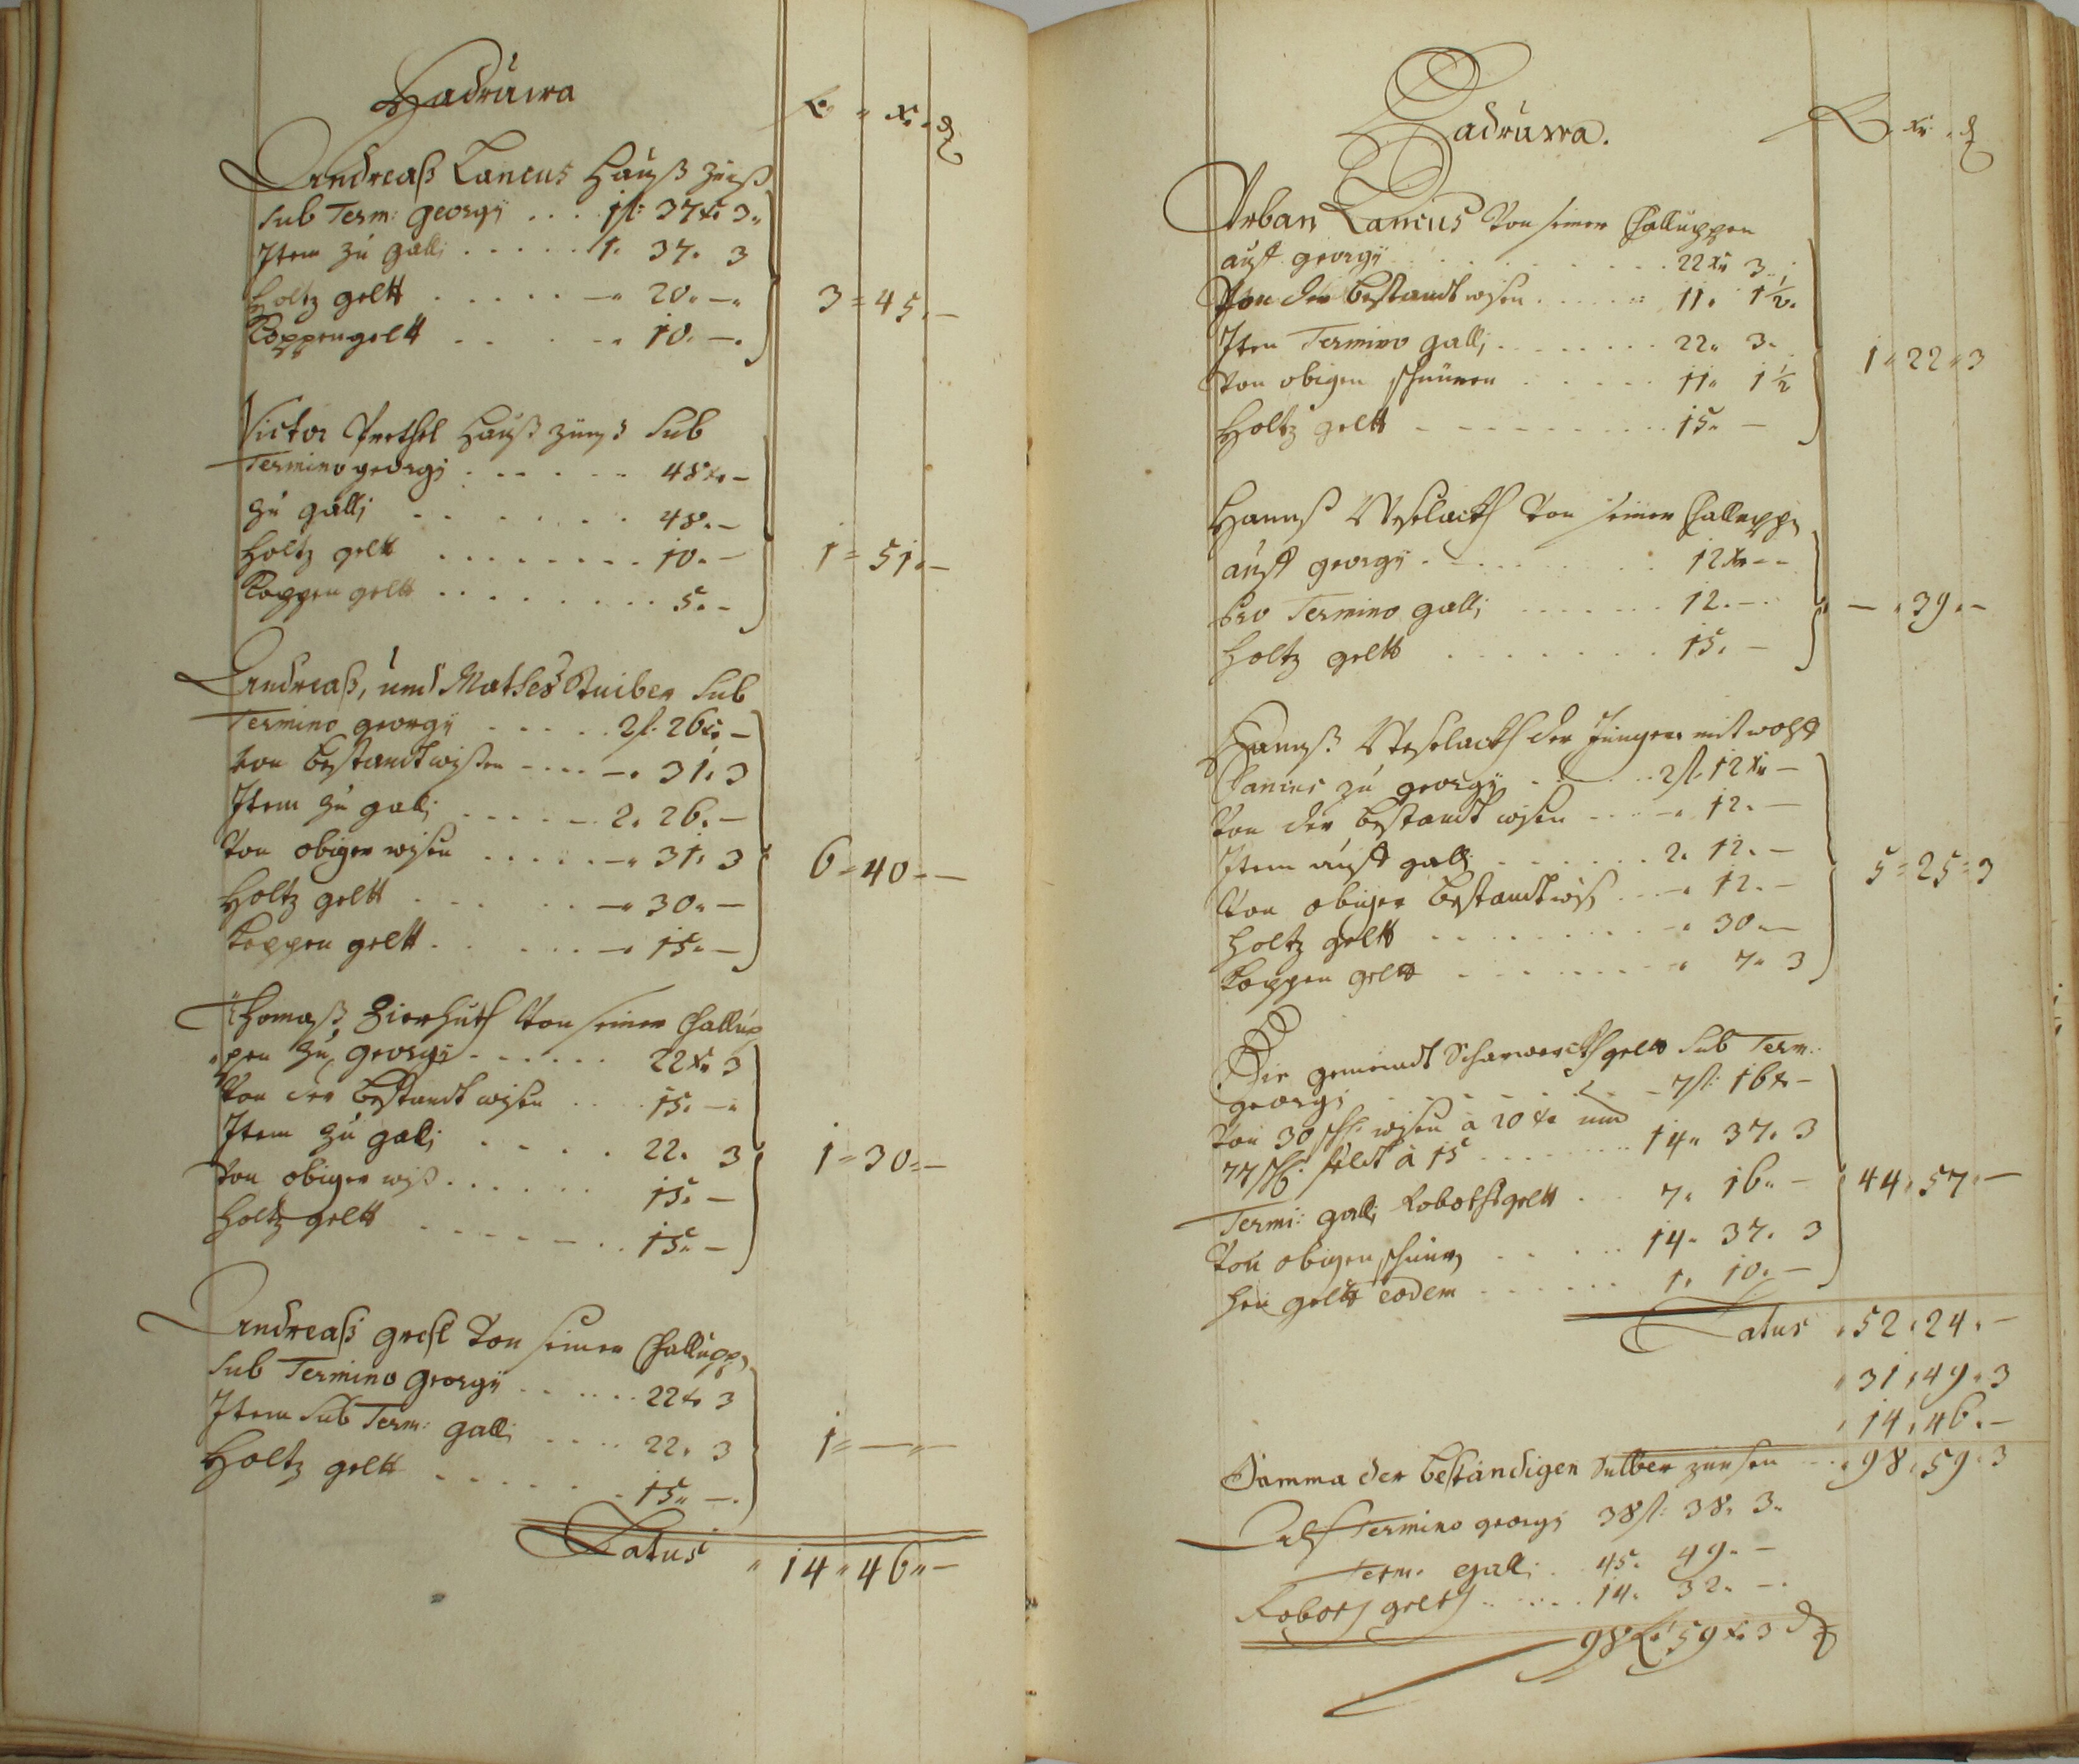 Hadruwa
fl. xr. d
Andreaß Lancus Hauß Zinß
sub Term: Georgÿ . . . 1 fl: 37 xr 3
Item zu Galli . . . . . 1. 37. 3
Holtz geltt . . . . . — 20. —
Koppengeltt . . . . 10. —
3 = 45. —
Victor Hauß Zinß Sub
Termino Georgi . . . . . . 48 xr —
Zu Galli . . . . . . . 48. —
Holtz gelt . . . . . . . . 10. —
Koppen geltt . . . . . . . . 5. —
1 = 51. —
Andreaß, und Mathes Sub
Termino Georgÿ . . . . . 2 fl. 26 xr —
von bestandtwisen . . . . — 31. 3
Item Zu Galli . . . . . 2. 26. —
Von obiger wisen . . . . . — 31. 3
Holtz geltt . . . . — 30. —
Koppen geltt . . . . . — 15. —
6 = 40. —
Thomaß Zierhuth Von seiner Challup
pen Zu Georgÿ . . . . . . 22 xr 3
Von der bestandt wisen . . . . 15. —
Item Zu Galli . . . . 22. 3
Von obiger wiß . . . . . . 15. —
Holtz geltt . . . . . . 15. —
1 = 30. —
Andreaß Gresl Von seiner Challupp
sub Termino Georgÿ . . . . . . 22 xr 3
Item Sub Term: Galli . . . . 22. 3
Holtz geltt . . . . . . 15. —
1 = — —
Latus 14 . 46 . —
Hadruwa.
fl. xr. d
Urban Lancius Von seiner Challuppen
auff Georgÿ . . . . . . . . . 22 xr 3
Von der bestandt wisen . . . . . 11. 1½
Item Termino Galli . . . . . . . 22. 3
Von obigen . . . . . 11. 1½
Holtz geltt . . . . . . . . . 15. —
1 . 22 . 3
Hannß Von seiner Challuppn
auff Georgÿ . . . . . . . . 12 xr —
Pro Termino Galli . . . . . . 12. —
Holtz geltt . . . . . . . 15. —
— . 39 . —
Hannß der Jünger
Lancius zu Georgÿ . . . . . 2 fl. 12 xr —
Von der bestandt wisen . . . . — 12. —
Item auff Galli . . . . . . 2. 12. —
Von obiger bestandtwiß . . . — 12. —
Holtz geltt . . . . . . . . 30. —
Koppen geltt . . . . . . . 7. 3
5 = 25 = 3
Die gemeindt Scharwerckhgeltt Sub Term:
Georgi . . . . . . . 7 fl: 16 xr —
Von 30 wisen à 20 xr und
77 feldt à 15 . . . . . . . . 14. 37. 3
Termi: Galli Robothgeltt . . . 7. 16. —
Von obigen . . . . . 14. 37. 3
geltt eodem . . . . . . 1. 10. —
44 . 57 . —
Latus . 52 . 24 . —
31 . 49 . 3
14 . 46 . —
Summa der beständigen zünsen . . . 98 . 59 . 3
Als Termino Georgi 38 fl: 38. 3.
Term. Galli . 45. 49. —
Roboth geltt . . . . . 14. 32. —
98 fl. 59 xr 3 d